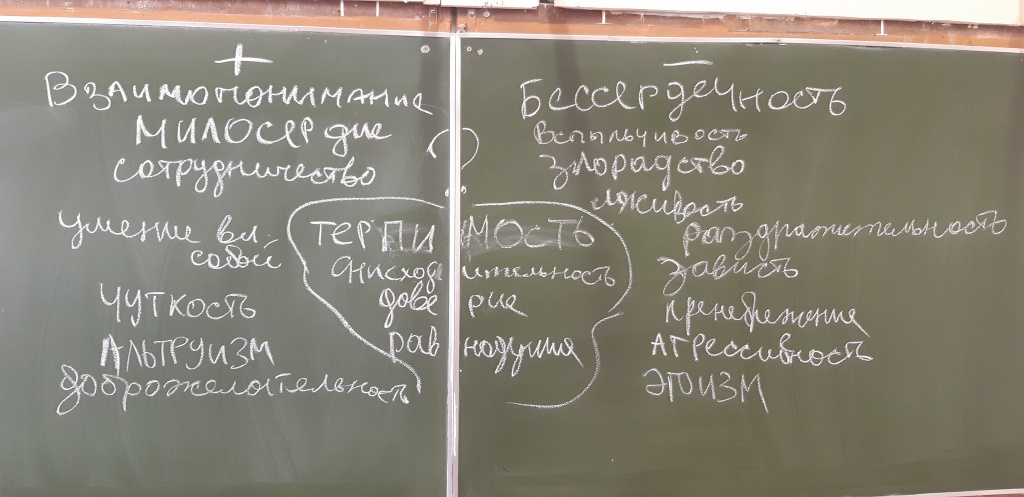 +
Взаимопонимание
милосердие
сотрудничество
умение вл.
собой
чуткость
Альтруизм
доброжелательность
?
терпимость
снисходительность
доверие
равнодушие
—
Бессердечность
вспыльчивость
злорадство
лживость
раздражительность
зависть
пренебрежение
агрессивность
эгоизм